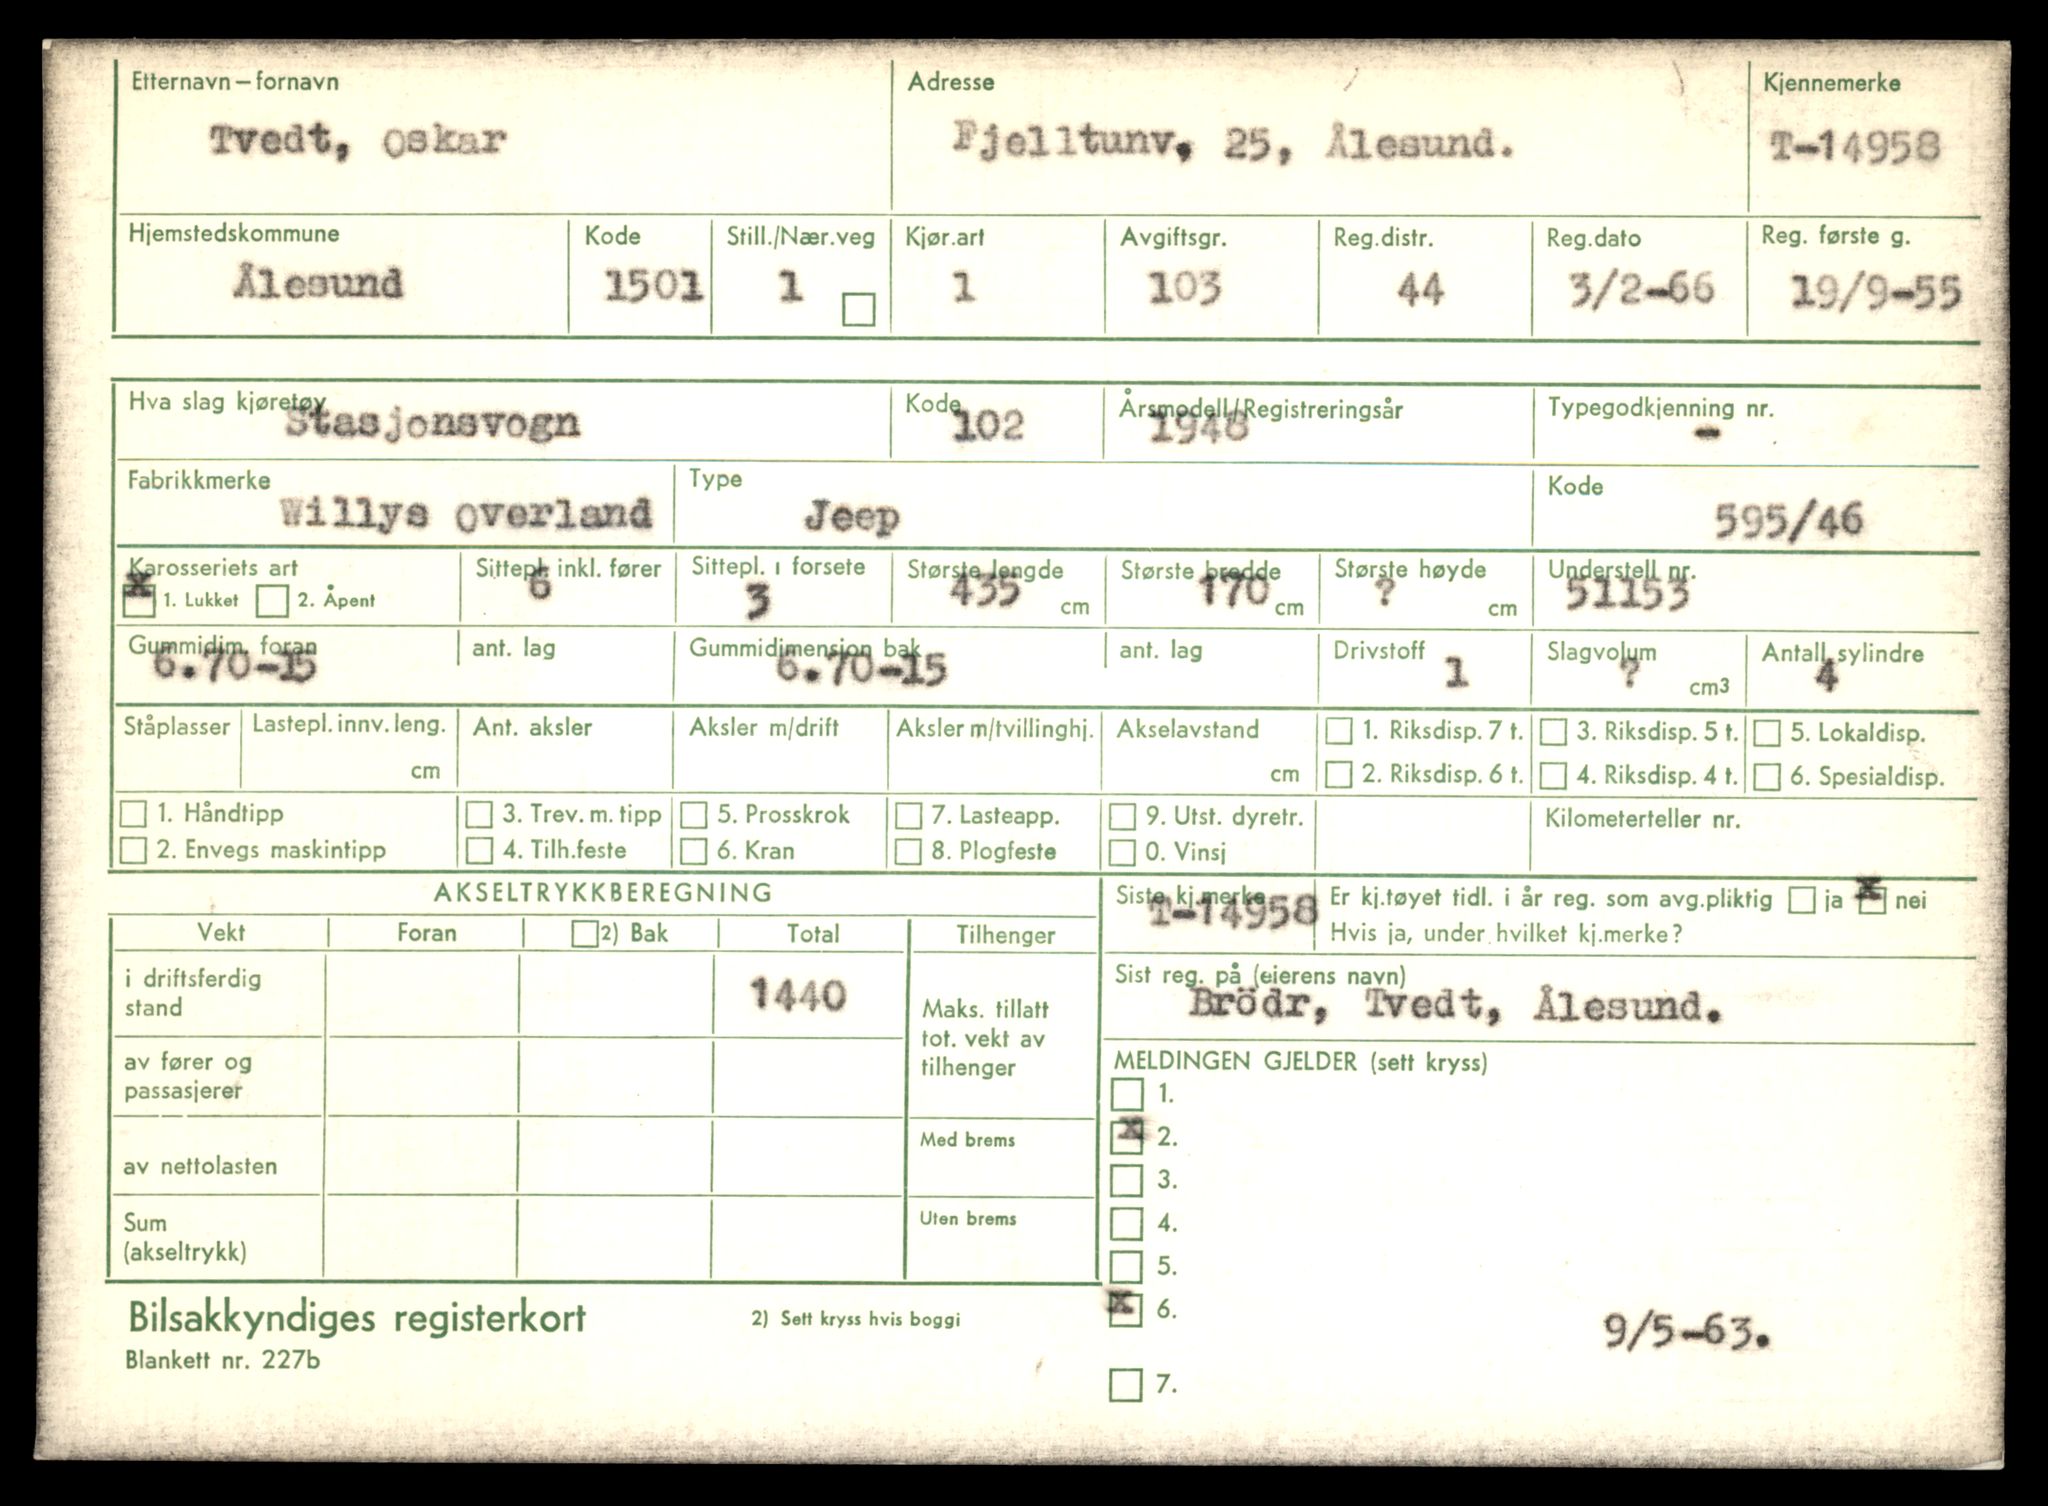 Etternavn – fornavn
Tvedt, Oskar
Adresse
Fjelltunv. 25, Ålesund.
Kjennemerke
T-14958
Hjemstedskommune
Ålesund
Kode
1501
Still./Nær.veg
1
Kjør.art
1
Avgiftsgr.
103
Reg.distr.
44
Reg.dato
3/2-66
Reg. første g.
19/9-55
Hva slag kjøretøy
Stasjonsvogn
Kode
102
Årsmodell/Registreringsår
1948
Typegodkjenning nr.
-
Fabrikkmerke
Willys overland
Type
Jeep
Kode
595/46
Karosseriets art
x 1. Lukket 2. Åpent
Sittepl. inkl. fører
6
Sittepl. i forsete
3
Største lengde
435 cm
Største bredde
170 cm
Største høyde
? cm
Understell nr.
51153
Gummidim. foran
6.70-15
ant. lag
Gummidimensjon bak
6.70-15
ant. lag
Drivstoff
1
Slagvolum
? cm3
Antall sylindre
4
Ståplasser
Lastepl. innv. leng.
cm
Ant. aksler
Aksler m/drift
Aksler m/tvillinghj.
Akselavstand
cm
1. Riksdisp. 7 t.
2. Riksdisp. 6 t.
3. Riksdisp. 5 t.
4. Riksdisp. 4 t.
5. Lokaldisp.
6. Spesialdisp.
1. Håndtipp
2. Envegs maskintipp
3. Trev. m. tipp
4. Tilh.feste
5. Prosskrok
6. Kran
7. Lasteapp.
8. Plogfeste
9. Utst. dyretr.
0. Vinsj
Kilometerteller nr.
AKSELTRYKKBEREGNING
Vekt Foran 2) Bak Total Tilhenger
i driftsferdig
stand
1440
av fører og
passasjerer
av nettolasten
Sum
(akseltrykk)
Maks. tillatt
tot. vekt av
tilhenger
Med brems
Uten brems
Siste kj.merke
T-14958
Er kj.tøyet tidl. i år reg. som avg.pliktig ja x nei
Hvis ja, under hvilket kj.merke?
Sist reg. på (eierens navn)
Brödr, Tvedt, Ålesund.
MELDINGEN GJELDER (sett kryss)
1.
x 2.
3.
4.
5.
x 6.
9/5-63.
7.
Bilsakkyndiges registerkort
2) Sett kryss hvis boggi
Blankett nr. 227b